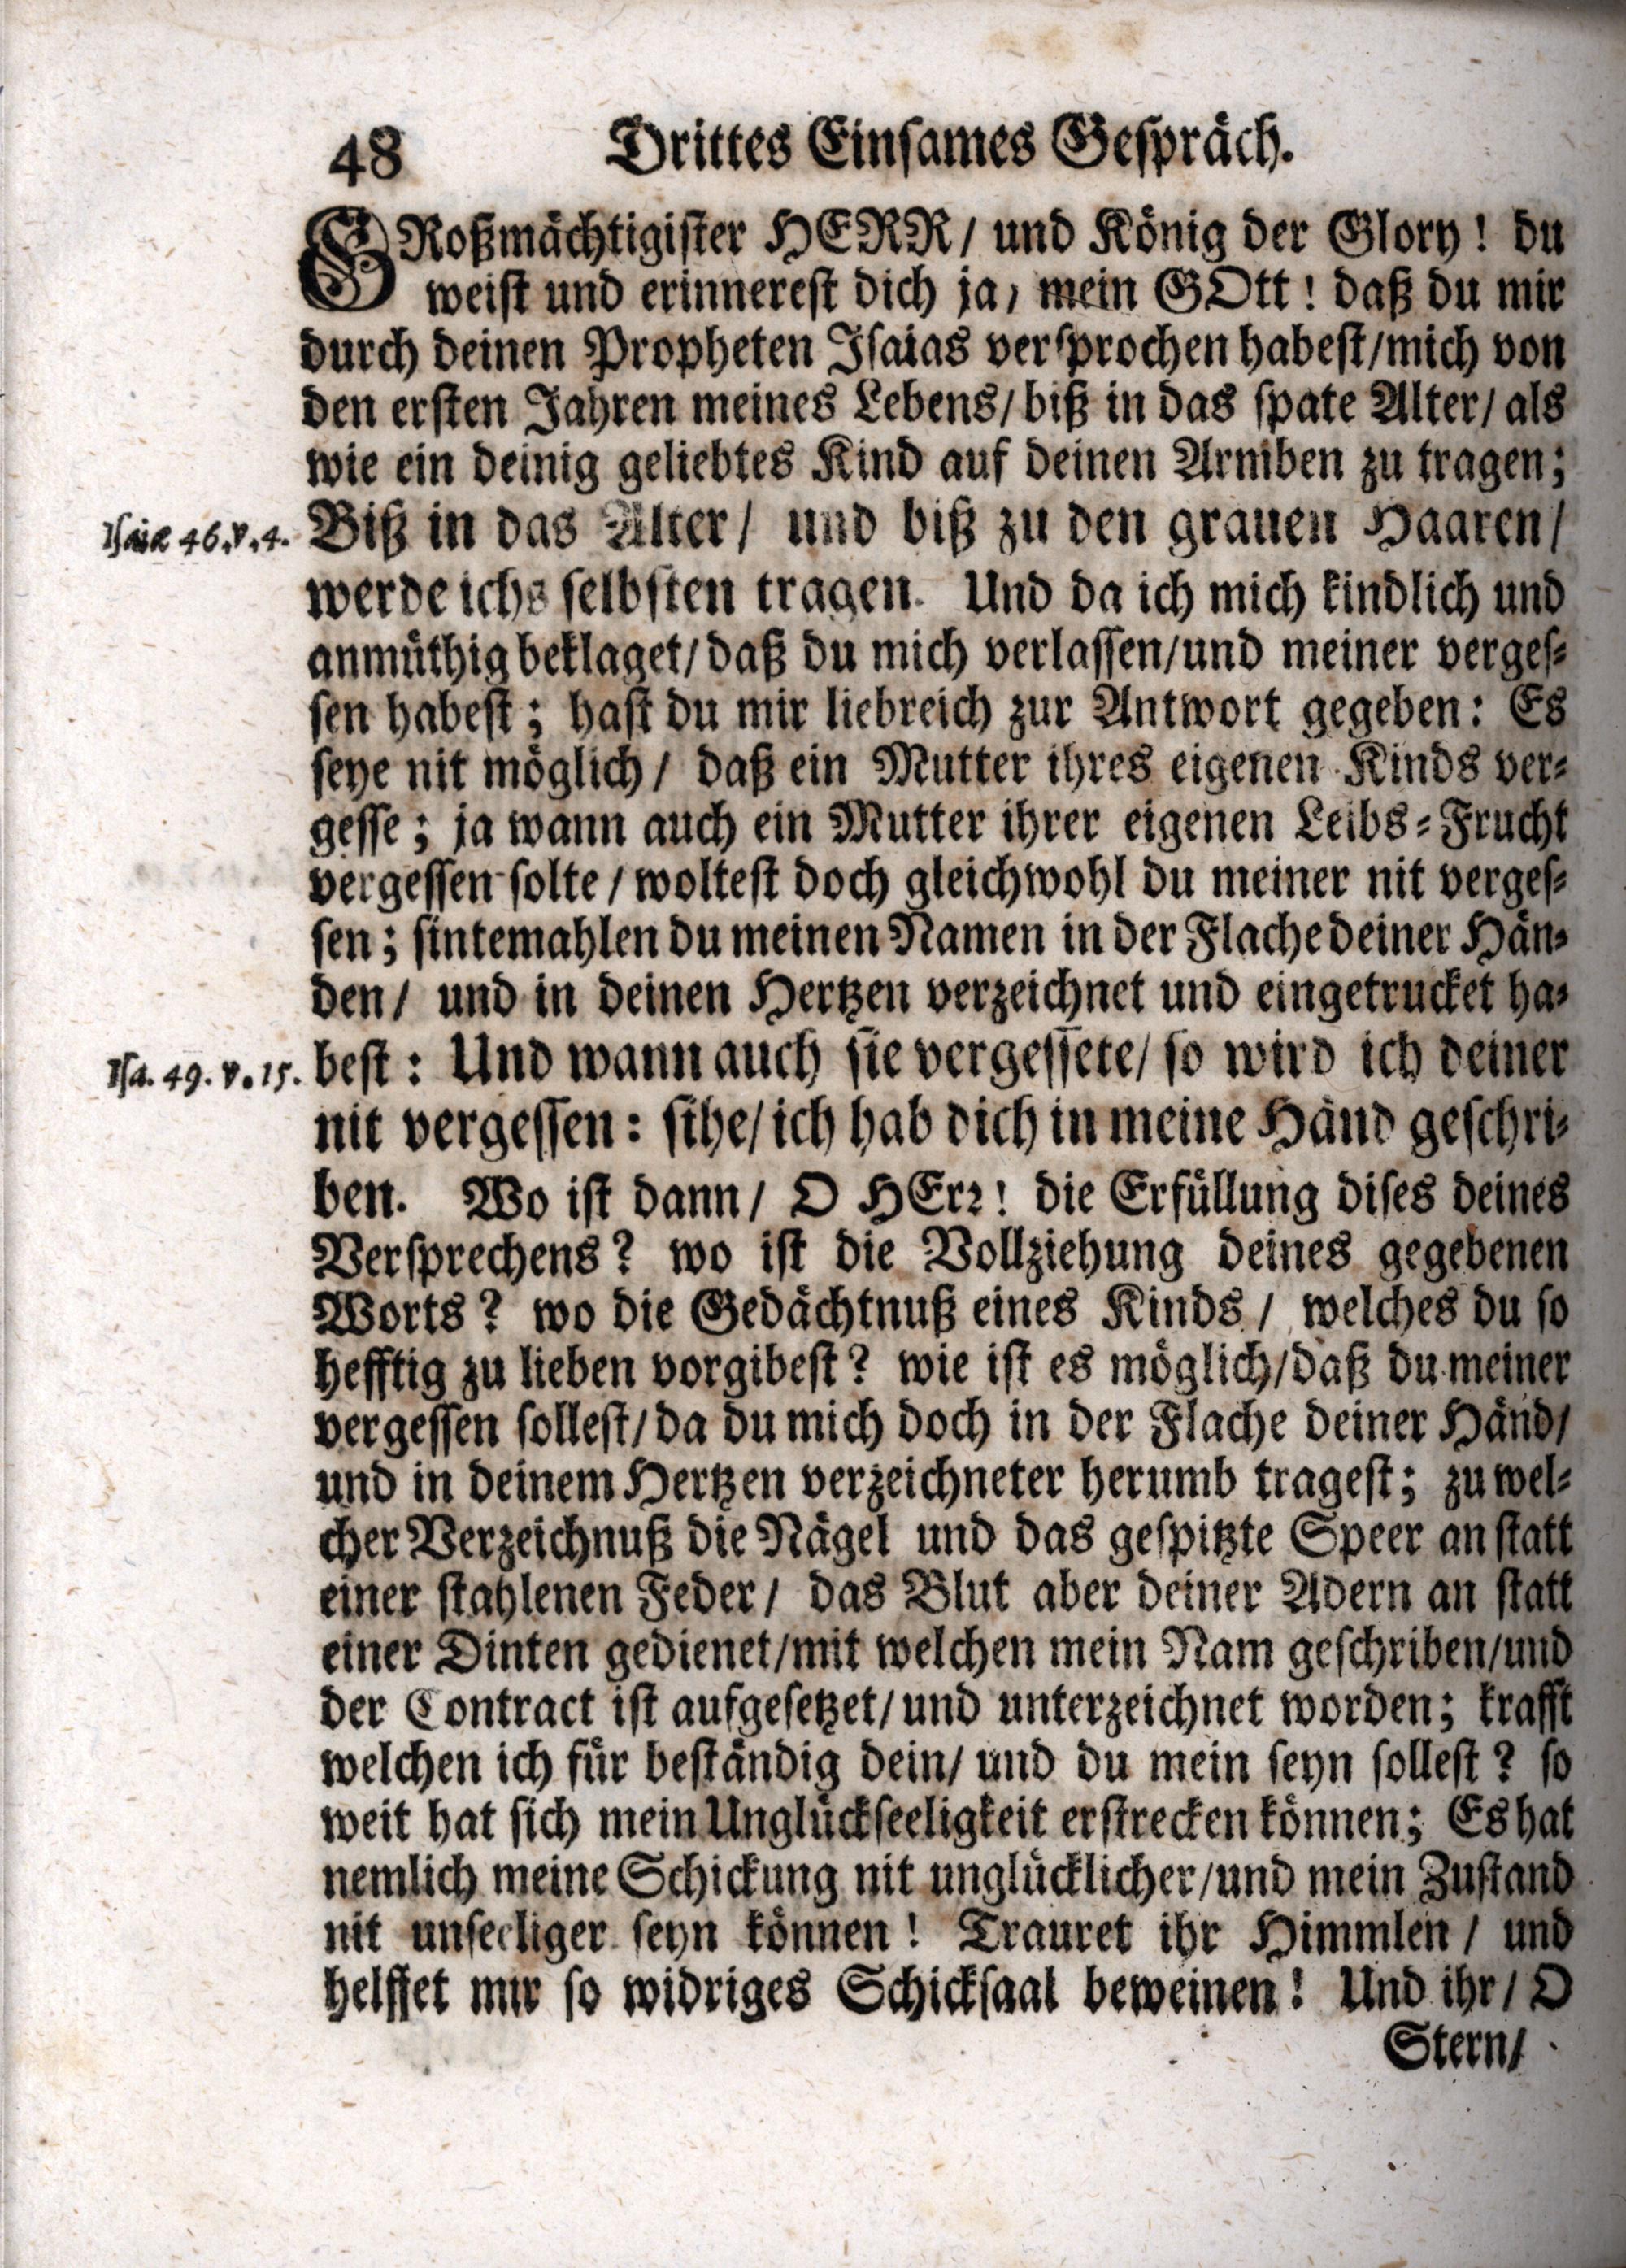 48 Drittes Einsames Gespräch.
GRoßmächtigister HERR/ und König der Glory! du
weist und erinnerest dich ja, mein GOtt! daß du mir
durch deinen Propheten Isaias versprochen habest/mich von
den ersten Jahren meines Lebens/ biß in das spate Alter/ als
wie ein deinig geliebtes Kind auf deinen Armben zu tragen;
Isaiæ 46. v. 4. Biß in das Alter/ und biß zu den grauen Haaren/
werde ichs selbsten tragen. Und da ich mich kindlich und
anmüthig beklaget/ daß du mich verlassen/und meiner verges-
sen habest; hast du mir liebreich zur Antwort gegeben: Es
seye nit möglich/ daß ein Mutter ihres eigenen Kinds ver-
gesse; ja wann auch ein Mutter ihrer eigenen Leibs-Frucht
vergessen solte/ woltest doch gleichwohl du meiner nit verges-
sen; sintemahlen du meinen Namen in der Flache deiner Hän-
den/ und in deinen Hertzen verzeichnet und eingetrucket ha-
Isa. 49. v. 15. best: Und wann auch sie vergessete/ so wird ich deiner
nit vergessen: sihe/ ich hab dich in meine Händ geschri-
ben. Wo ist dann/ O HErr! die Erfüllung dises deines
Versprechens? wo ist die Vollziehung deines gegebenen
Worts? wo die Gedächtnuß eines Kinds/ welches du so
hefftig zu lieben vorgibest? wie ist es möglich/daß du meiner
vergessen sollest/ da du mich doch in der Flache deiner Händ/
und in deinem Hertzen verzeichneter herumb tragest; zu wel-
cher Verzeichnuß die Nägel und das gespitzte Speer an statt
einer stahlenen Feder/ das Blut aber deiner Adern an statt
einer Dinten gedienet/mit welchen mein Nam geschriben/und
der Contract ist aufgesetzet/ und unterzeichnet worden; krafft
welchen ich für beständig dein/ und du mein seyn sollest? so
weit hat sich mein Unglückseeligkeit erstrecken können; Es hat
nemlich meine Schickung nit unglücklicher/und mein Zustand
nit unseeliger seyn können! Trauret ihr Himmlen/ und
helffet mir so widriges Schicksaal beweinen! Und ihr/ O
Stern/